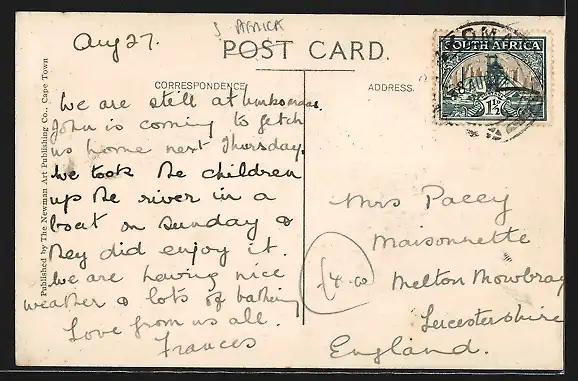 S. AFRICA
Aug 27.
POST CARD.
CORRESPONDENCE
ADDRESS.
SOUTH AFRICA
1½
Published by The Newman Art Publishing Co., Cape Town
We are still at Umkomaas.
John is coming to fetch
us home next Thursday.
We took the children
up the river in a
boat on Sunday &
they did enjoy it.
We are having nice
weather & lots of bathing
Love from us all.
Frances
Mrs Pacey
Maisonnette
Melton Mowbray
Leicestershire
England.
£4.00